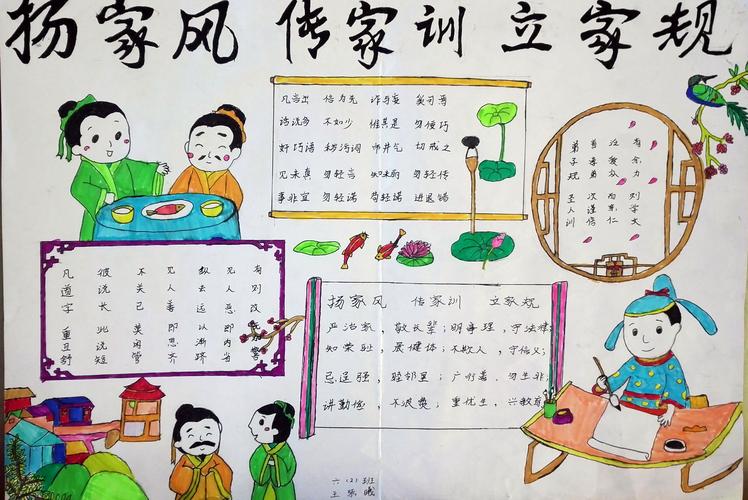 扬家风 传家训 立家规
凡出言 信为先 诈与妄 奚可焉
话说多 不如少 惟其是 勿佞巧
奸巧语 秽污词 市井气 切戒之
见未真 勿轻言 知未的 勿轻传
事非宜 勿轻诺 苟轻诺 进退错
弟子规 圣人训
首孝弟 次谨信
泛爱众 而亲仁
有余力 则学文
凡道字 重且舒
彼说长 此说短
不关己 莫闲管
见人善 即思齐
纵去远 以渐跻
见人恶 即内省
有则改 无加警
扬家风 传家训 立家规
严治家，敬长辈；明事理，守法律；
知荣耻，展健体；不欺人，守信义；
忌逞强，睦邻里；广行善，勿生非
讲勤俭，不浪费；重优生，兴教育
六（2）班
王乐曦